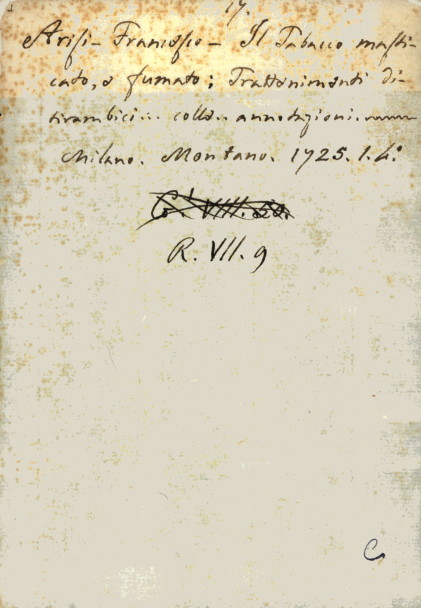 17.
Arisi - Francesco - Il Tabacco masti-
cato, e fumato; Trattenimenti di-
tirambici... colle.. annotazioni.
Milano. Montano. 1725. 1. 4.°
R. VII. 9
C